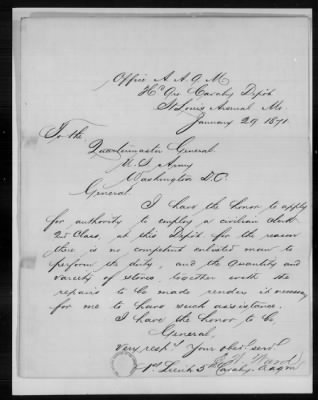 Office A A Q M
Hd Qrs Cavalry Depôt
St Louis Arsenal Mo.
January 29 1871.
To the
Quartermaster General.
U. S. Army
Washington D.C.
General
I have the honor to apply
for authority to employ a civilian clerk
2d Class, at this Depôt for the reason
there is no competent enlisted man to
perform the duty, and the quantity and
variety of stores, together with the
repairs to be made renders it necessary
for me to have such assistance.
I have the honor to be,
General,
Very respy Your obdt servt
Ward
1st Lieut 5th Cavalry. AAQM